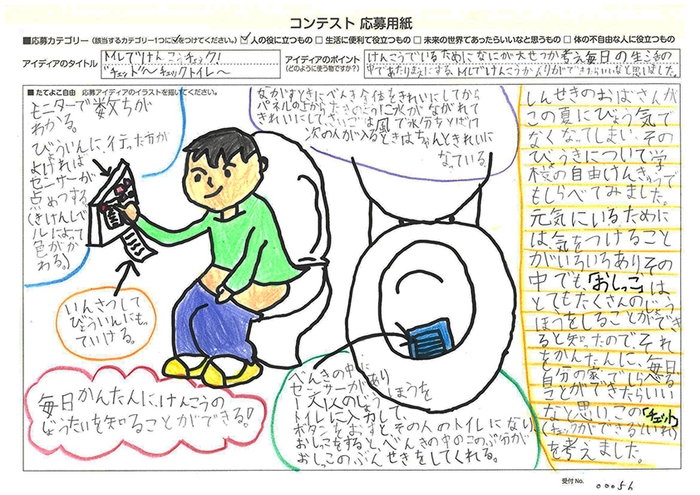 コンテスト 応募用紙
■応募カテゴリー(該当するカテゴリー1つに✓をつけてください。) ☑人の役に立つもの □生活に便利で役立つもの □未来の世界であったらいいなと思うもの □体の不自由な人に役立つもの
アイディアのタイトル
トイレでけんこうチェック!
"チェック〜チェックトイレ〜
アイディアのポイント
(どのように使う物ですか?)
けんこうでいるためになにが大せつか考え毎日の生活の
中であたりまえにするトイレでけんこうかん りができたらいいなと思いました。
■たてよこ自由 応募アイディアのイラストを描いてください。
モニターで数ちが
わかる。
びょういんに行った方が
よければ
センサーが
点めつする
(きけんレベ
ルによって
色がか
わる。)
ながすときにべんき全体をきれいにしてから
パネルの上から
水がながれて
きれいにして、さいごは風で水分をとばけ
次の人が入るときはちゃんときれいに
なっている。
しんせきのおばさんが
この夏にびょう気で
なくなってしまい、その
びょうきについて学
校の自由けんきゅうで
もしらべてみました。
元気にいるために
は、気をつけること
がいろいろありその
中でも、「おしっこ」は
とてもたくさんのじょう
ほうをしることができ
ると知ったのでそれ
をかんたんに、毎日
自分の家でしらべる
ことができたらいい
なと思い、この「チェック
(チェックができるといれ)
を考えました。
いんさつして
びょういんにもっ
ていける。
毎日かんたんに、けんこうの
じょうたいを知ることができる!
べんきの中に
センサーがあり
1人1人のじょうほうを
トイレに入力して、
ボタンをおすとその人のトイレになり
おしっこをすると、べんきの中のこのぶ分が
おしっこのぶんせきをしてくれる。
受付No.